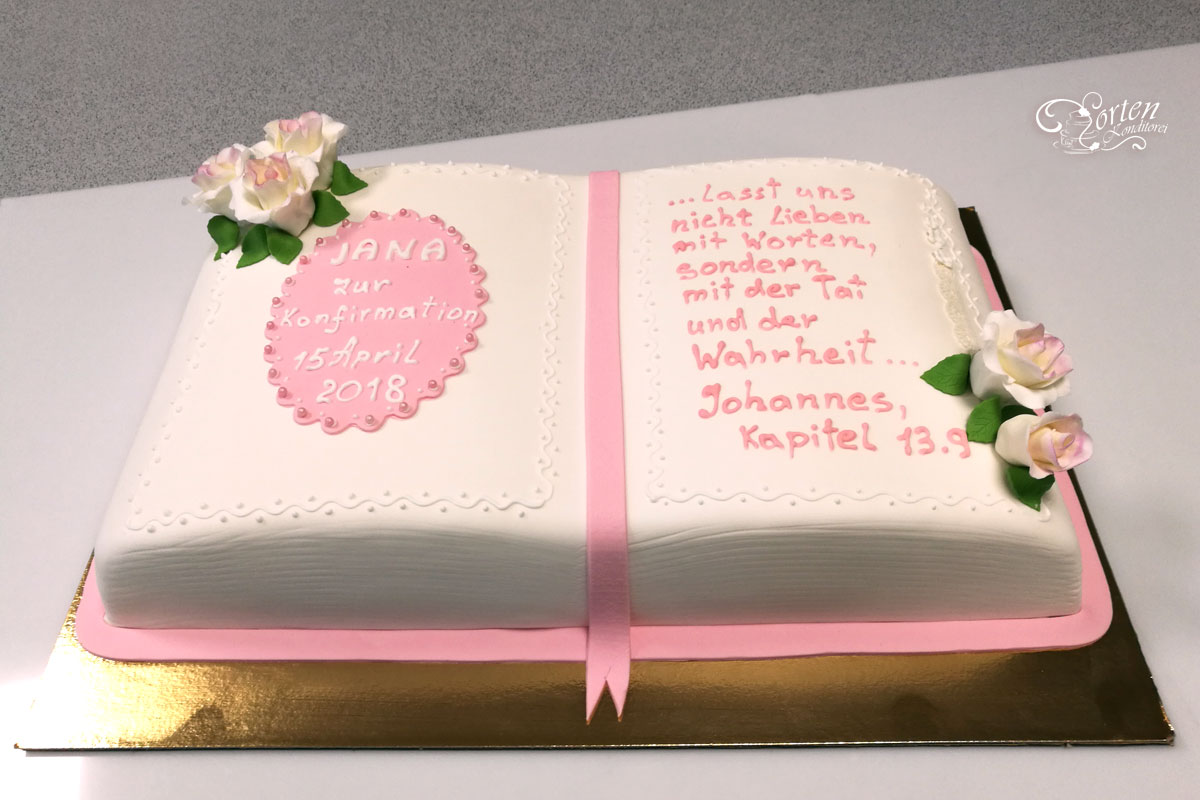 JANA
zur
Konfirmation
15 April
2018
...Lasst uns
nicht Lieben
mit Worten,
sondern
mit der Tat
und der
Wahrheit...
Johannes,
Kapitel 13.9
Torten
Konditorei